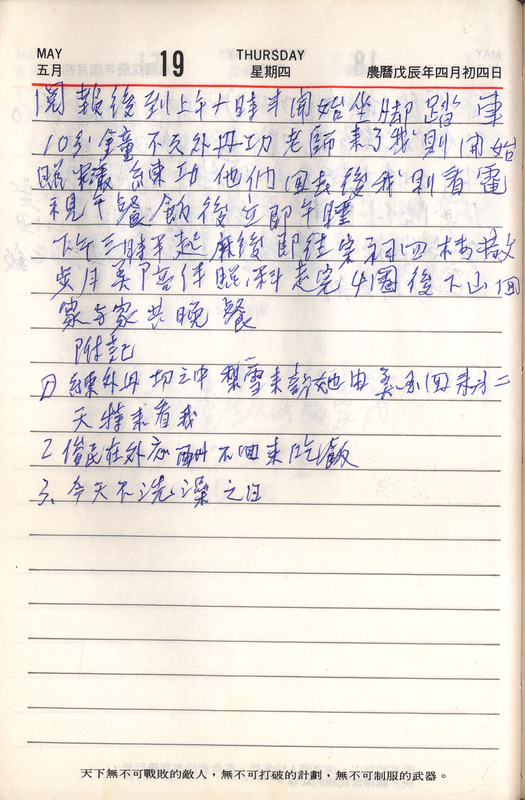 MAY
五月
19
THURSDAY
星期四
農曆戊辰年四月初四日
1閱報後到上午十時半開始坐脚踏車
10分鐘 不久外丹功老師來了我則開始
練功他們回去後我則看電
視午餐飯後立即午睡
下午三時半起麻後即往
月美陪伴 走完4圈後下山回
家与家共晚餐
附記
練外丹功之中 梨雪來 她由美國回來才二
天特來看我
2 俊民在外应酬不回來吃飯
3、今天不洗澡之日
天下無不可戰敗的敵人，無不可打破的計劃，無不可制服的武器。